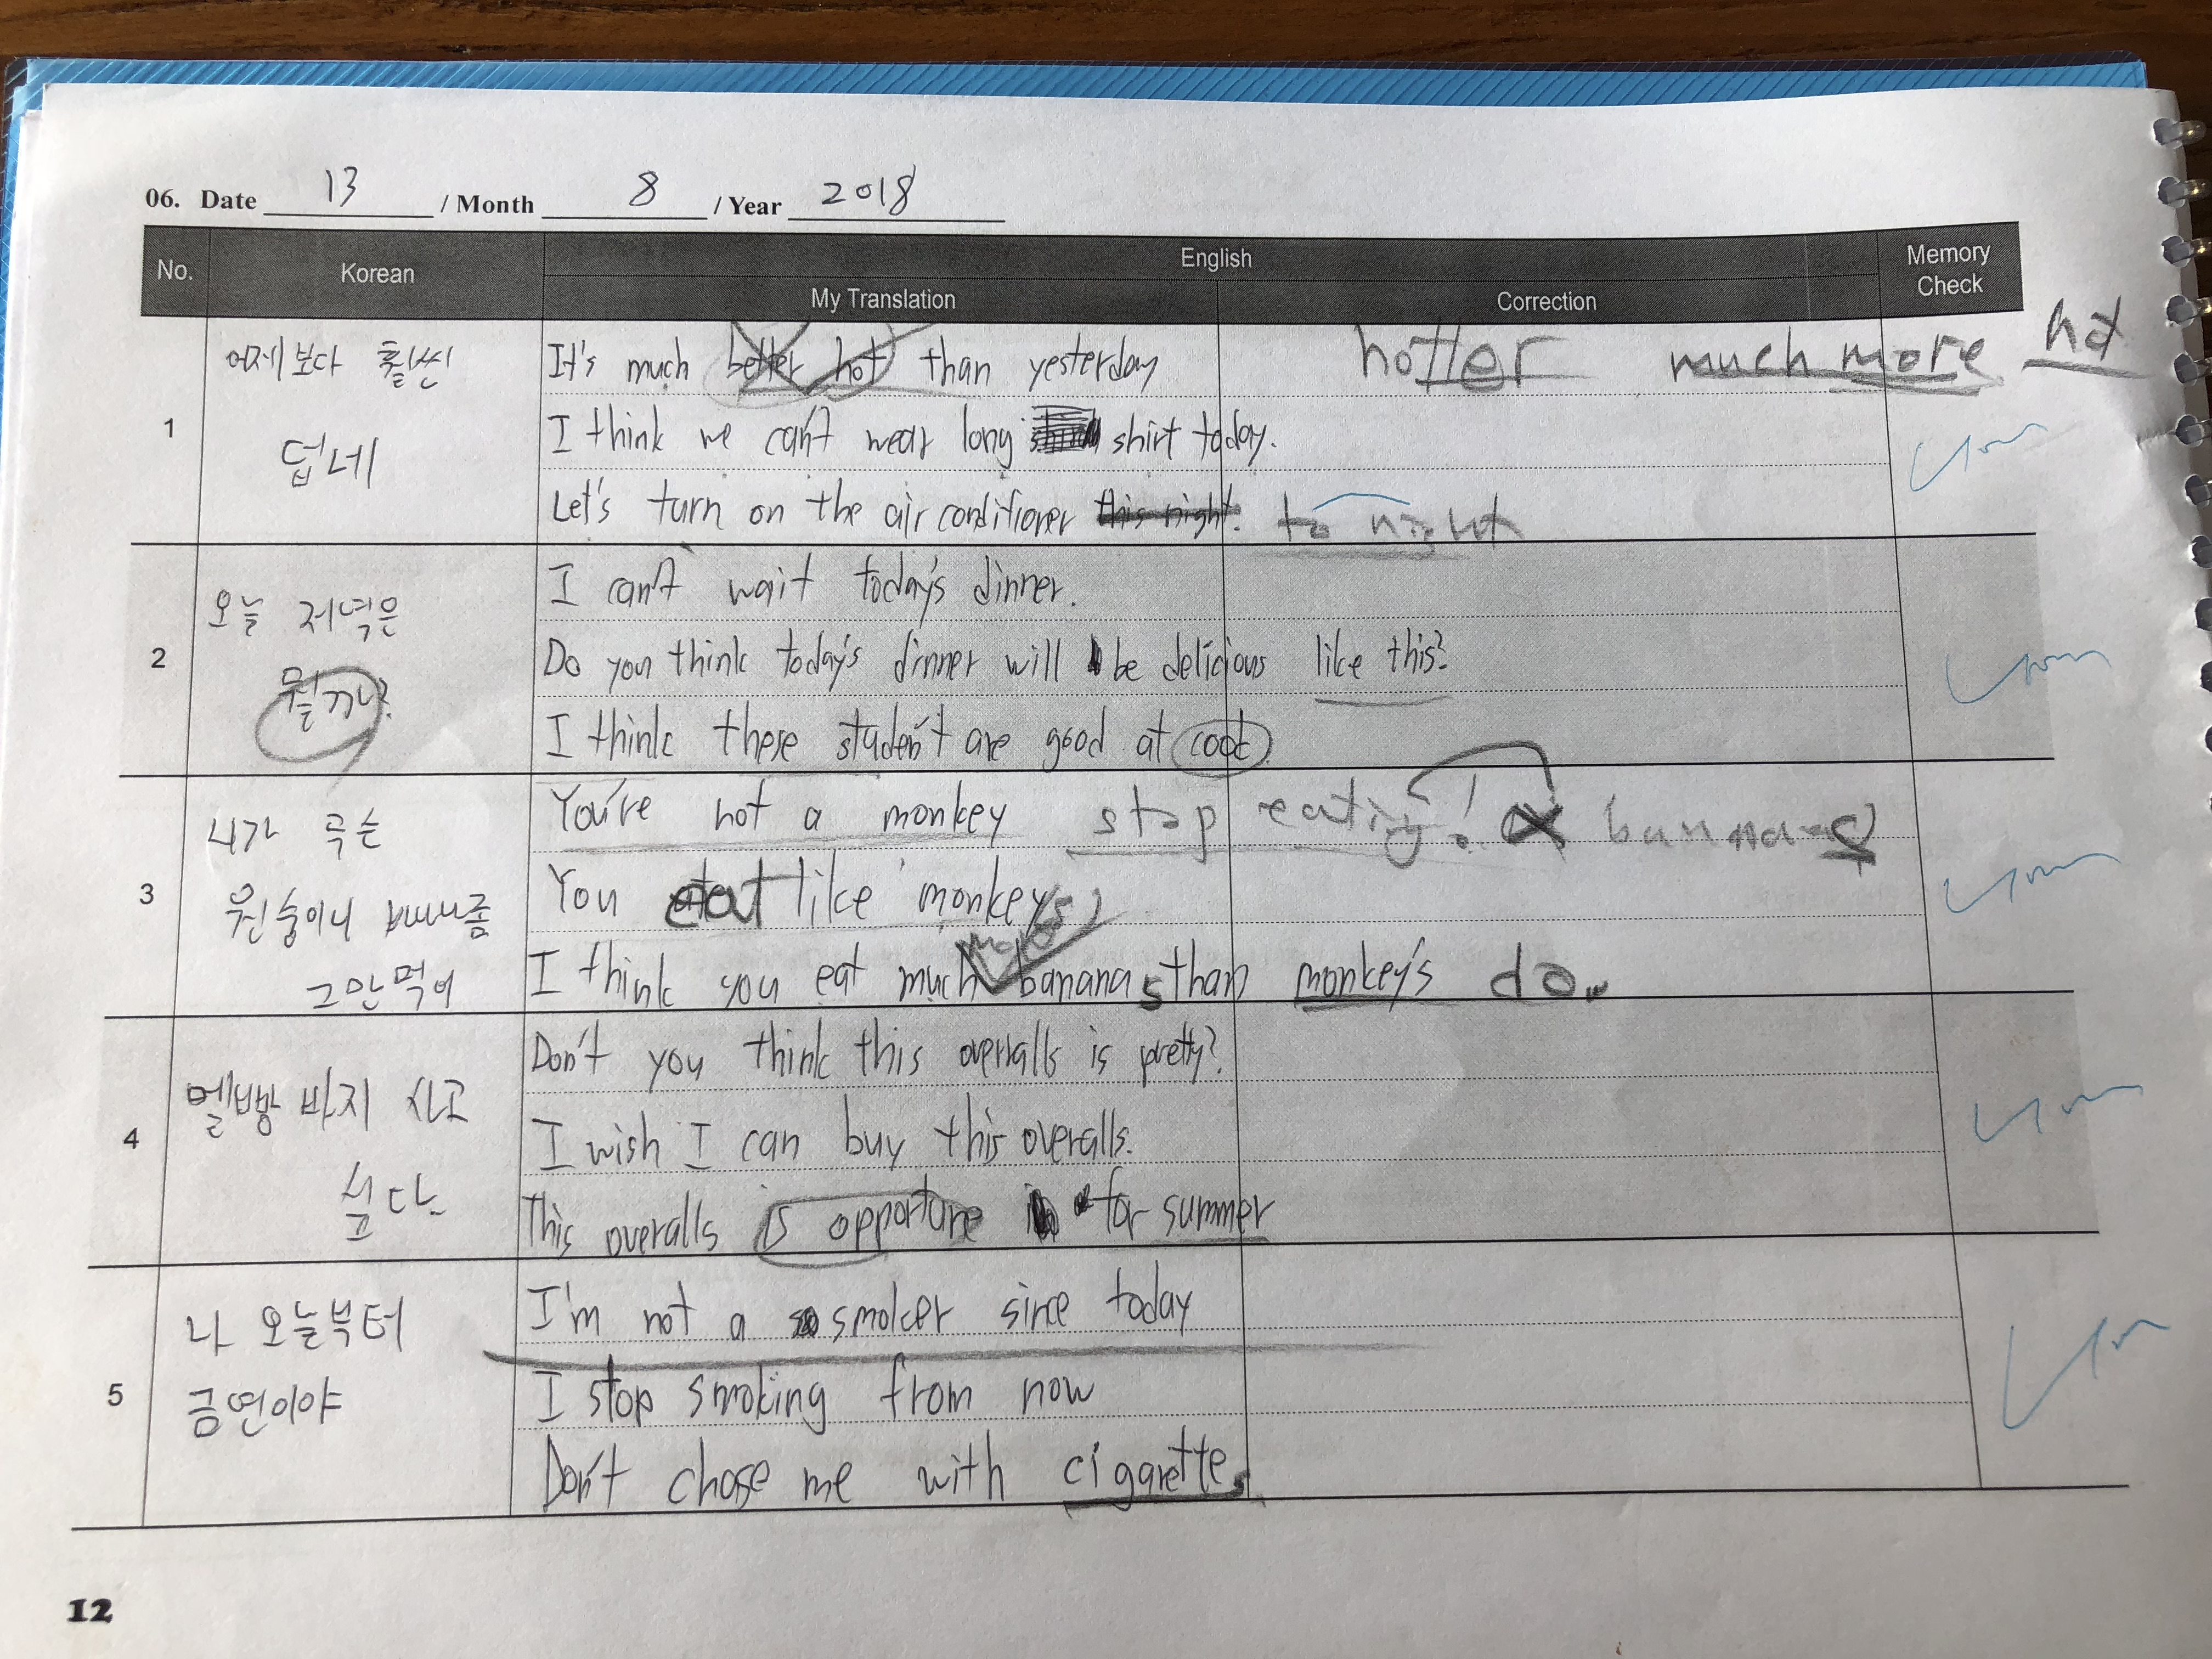 06. Date 13 / Month 8 / Year 2018
No. Korean English Memory Check
My Translation Correction
1
어제보다 훨씬
덥네
It's much better hot than yesterday hotter much more hot
I think we can't wear long shirt today.
Let's turn on the air conditioner this night. to night
2
오늘 저녁은
뭘까?
I can't wait today's dinner.
Do you think today's dinner will be delicious like this?
I think these student are good at cook
3
니가 무슨
원숭이니 바나나좀
그만먹어
You're not a monkey stop eating! bananas
You eat like monkeys
I think you eat much more bananas than monkey's do.
4
멜빵 바지 사고
싶다.
Don't you think this overralls is pretty?
I wish I can buy this overalls.
This overalls is opportune for summer
5
나 오늘부터
금연이야
I'm not a smoker since today
I stop smoking from now
Don't chase me with cigarette
12